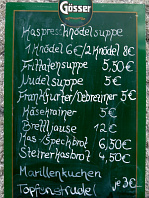 Gösser
Kaspressknödelsuppe
1 Knödel 6€/2 Knödel 8€
Frittatensuppe 5,50€
Nudelsuppe 5€
Frankfurter/Debreziner 5€
Käsekrainer 5€
Brettljause 12€
Kas-/Speckbrot 6,50€
Steirerkasbrot 4,50€
Marillenkuchen
Topfenstrudel je 3€